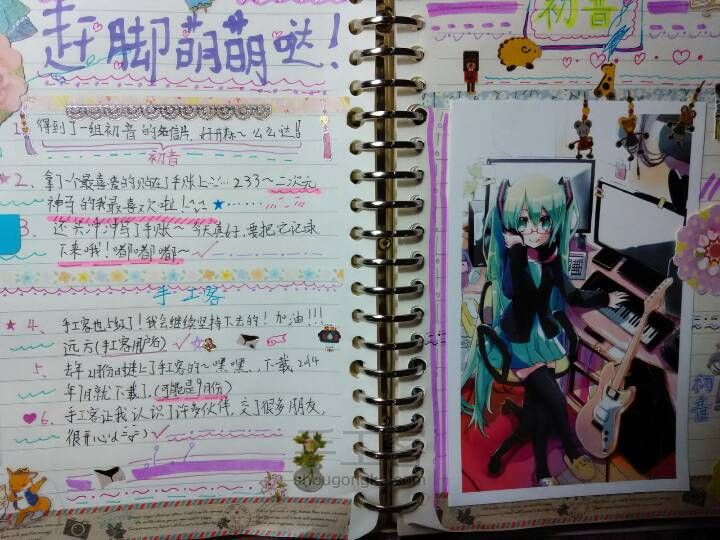 赶脚萌萌哒！
1、得到了一组初音的名信片，好开森~么么达!!
初音
★2、拿了个最喜爱的贴在了手账上∵… 233~二次元
神马的我最喜欢啦！^-^
3、还美冲冲写了手账~今天真好，要把它记录
下来哦！嘟嘟嘟~
手工客
★4、手工客也5级了！我会继续坚持下去的！加油!!!
远方(手工客用户名)
5、去年2月份时迷上了手工客的~嘿嘿..下载，2014
年7月就下载了。(可能是9月份)
6、手工客让我认识了许多伙伴，交了很多朋友，
很开心
初音
手工客
shougongke.com
初音